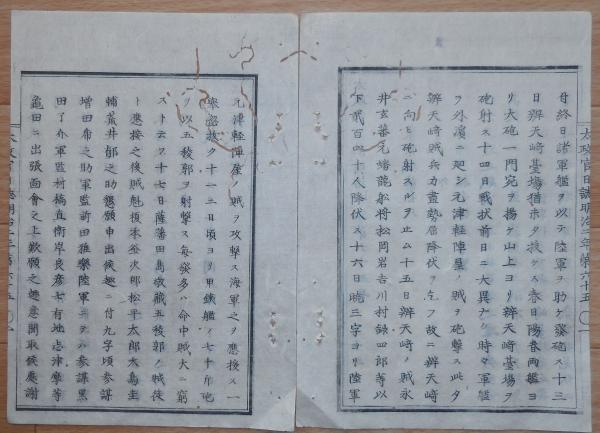 太政官日誌明治二年第六十五
母終日諸軍艦ヲ以テ陸軍ヲ助ケ發砲ス十三
日辨天崎臺場猶未タ拔ケス春日陽春両艦ヨ
リ大砲一門宛ヲ揚ケ山上ヨリ辨天崎臺場ヲ
砲射ス十四日賊状前日ニ大異ナシ時々軍艦
ヲ外濱ニ廻シ元津軽陣屋ノ賊ヲ砲撃ス此夕
辨天崎賊兵力盡勢屈降伏ヲ乞フ故ニ辨天崎
ニ向ヒ砲射スルヲ止ム十五日辨天崎ノ賊永
井玄蕃元蟠龍船将松岡岩吉川村録四郎等以
下貳百四十人降伏ス十六日暁三字ヨリ陸軍
元津軽陣屋ノ賊ヲ攻撃ス海軍之ヲ應授ス一
擧盗拔ク十一二日頃ヨリ甲鐵艦ノ七十斤砲
ヲ以五稜郭ヲ射撃ス毎發多ハ命中賊大ニ窮
スト云フ十七日薩藩田島敬藏五稜郭ノ賊徒
ト應接之後賊魁榎本釜次郎松平太郎大鳥圭
輔荒井郁之助懇願申出候趣ニ付九字頃参謀
増田希之助軍監前田雅樂陸軍ニテハ参謀黒
田了介軍監村橋直衛岸良彦七有地志津摩等
亀田ニ出張面會之上歎願之趣意聞取候處謝